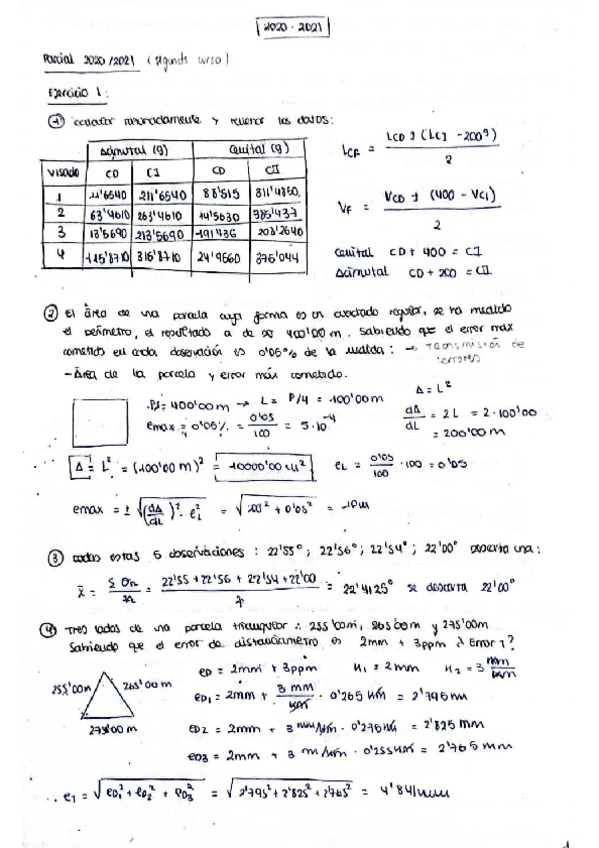 2020 - 2021
Parcial 2020/2021 (segundo curso)
Ejercicio 1:
① calcular razonadamente y rellenar los datos:
Azimutal (g) Cenital (g)
Visado CD CI CD CI
1 11'6540 211'6540 88'515
2 63'4610 263'4610 14'5630 385'437
3 13'5690 213'5690 191'436 208'2640
4 115'8710 315'8710 24'9560 375'044
LCF = LCD + (LCI - 200g) / 2
VF = VCD + (400 - VCI) / 2
Cenital CD + 400 = CI
Azimutal CD + 200 = CI
② El área de una parcela cuya forma es un cuadrado regular, se ha medido
el perímetro, el resultado a de 400'00 m. Sabiendo que el error max
cometido en cada observación es 0'05% de la medida: → Transmisión de
errores
- Área de la parcela y error máx cometido.
P = 400'00 m → L = P/4 = 100'00 m
emax = 0'05% = 0'05/100 = 5·10⁻⁴
A = L²
dA/dL = 2L = 2·100'00
= 200'00 m
A = L² = (100'00 m)² = 10000'00 m² eL = 0'05/100 · 100 = 0'05
emax = ± √(dA/dL)² · e² = √200² + 0'05² = 10m
③ dadas estas 5 observaciones: 22'55°; 22'56°; 22'54°; 22'00° descarta una:
x̄ = Σ On / n = 22'55 + 22'56 + 22'54 + 22'00 / 4 = 22'4125° se descarta 22'00°
④ Tres lados de una parcela triangular: 255'00m, 265'00m y 275'00m
Sabiendo que el error de distanciometro es 2mm + 3ppm ¿Error T?
255'00m 265'00m
275'00 m
eD = 2mm + 3ppm K1 = 2mm K2 = 3 mm/km
eD1 = 2mm + 3 mm/km · 0'265 km = 2'795 mm
eD2 = 2mm + 3 mm/km · 0'275 km = 2'825 mm
eD3 = 2mm + 3 mm/km · 0'255 km = 2'765 mm
eT = √eD1² + eD2² + eD3² = √2'795² + 2'825² + 2'765² = 4'841 mm